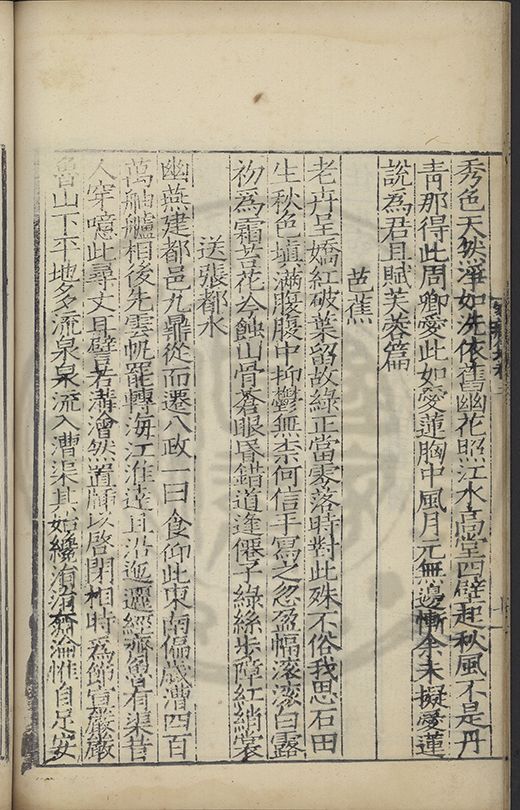 秀色天然淨如洗依舊幽花照江水高堂四壁起秋風不是丹
青那得此周卿愛此如愛蓮胸中風月元無邊慚余未擬愛蓮
說為君且賦芙蓉篇
芭蕉
老卉呈嬌紅破葉留故綠正當零落時對此殊不俗我思石田
生秋色塡滿腹腹中抑鬱無柰何信手寫之忽盈幅滚滚白露
初為霜苔花冷蝕山骨蒼眼昬錯道逢僊子綠絲步障紅綃裳
送張都水
幽燕建都邑九鼎從而遷八政一曰食仰此東南偏歲漕四百
萬舳艫相後先雲帆罷轉海江淮達且沿迤邐經齊魯有渠昔
人穿噫此尋丈且譬若溝澮然置牐以啓閉相時爲節宣嚴嚴
魯山下平地多流泉泉流入漕渠其始纔涓涓淪惟自足安